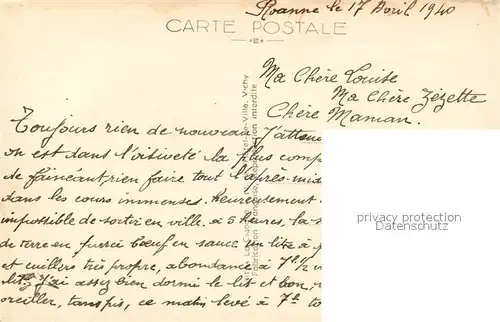 Roanne le 17 Avril 1940
CARTE POSTALE
Ma Chère Louise
Ma Chère Zézette
Chère Maman.
Toujours rien de nouveau J'atten
on est dans l'oisiveté la plus comp
de fainéant rien faire tout l'après-mid
dans les cours immenses. Heureusement
impossible de sortir en ville. a 5 heures la s
de terre en purée bœuf en sauce un litre a
et cuillers très propre, abondance a 7h 1/2
lit. J'ai assez bien dormi le lit est bon,
oreiller, tanpis, ce matin levé à 7h to
Vichy
Fabrication Française, Reproduction interdite
privacy protection
Datenschutz